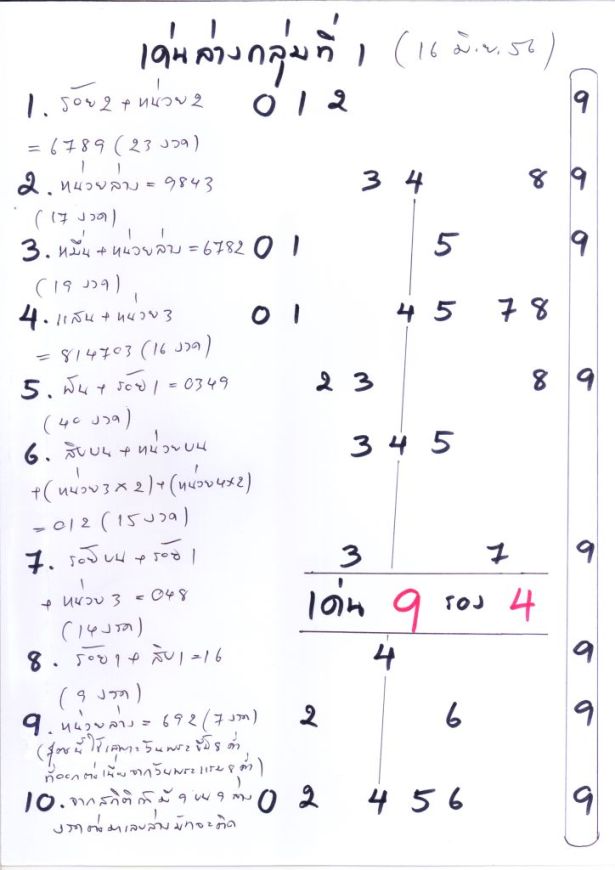 เด่นล่างกลุ่มที่ 1 (16 มิ.ย. 56)
1. ร้อย 2 + หน่วย 2 0 1 2 9
= 6789 (23 งวด)
2. หน่วยล่าง = 9843 3 4 8 9
(17 งวด)
3. หมื่น + หน่วยล่าง = 6782 0 1 5 9
(19 งวด)
4. แสน + หน่วย 3 0 1 4 5 7 8
= 814703 (16 งวด)
5. พัน + ร้อย 1 = 0349 2 3 8 9
(40 งวด)
6. สิบบน + หน่วยบน 3 4 5
+ (หน่วย 3 × 2) + (หน่วย 4 × 2)
= 012 (15 งวด)
7. ร้อยบน + ร้อย 1 3 7 9
+ หน่วย 3 = 048
เด่น 9 รอง 4
(14 งวด)
8. ร้อย 1 + สิบ 1 = 16 4 9
(9 งวด)
9. หน่วยล่าง = 692 (7 งวด) 2 6 9
(สูตรนี้ใช้เฉพาะวันพระขึ้น 8 ค่ำ
ที่ออกต่อเนื่องจากวันพระแรม 8 ค่ำ)
10. จากสถิติถ้ามี 9 บน 9 ล่าง 0 2 4 5 6 9
งวดต่อมาเลขล่างมักจะติด